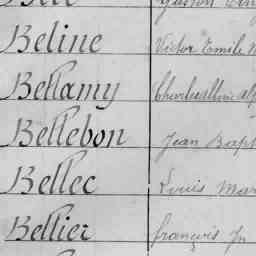 Beline Victor Emile
Bellamy
Bellebon Jean Bapt
Bellec Louis Mar
Bellier françois